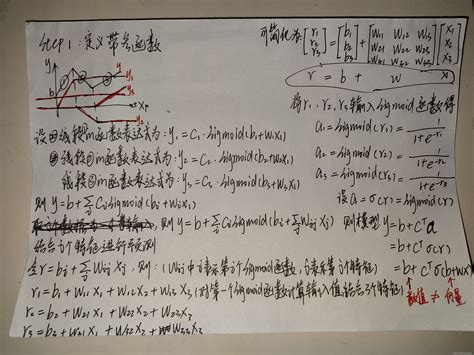 step 1: 定义带参函数
y
y₁
b
x
y₂
y₃
设①线段的函数表达式为: y₁ = C₁·sigmoid(b₁+w₁x₁)
②线段的函数表达式为: y₂ = C₂·sigmoid(b₂+w₂x₁)
线段③的函数表达式为: y₃ = C₃·sigmoid(b₃+w₃x₁)
则 y=b+∑Cᵢsigmoid(bᵢ+wᵢx₁)
则 y=b+∑Cᵢsigmoid(bᵢ+∑wᵢⱼxⱼ)
结合j个特征进行预测
令r=bᵢ+∑wᵢⱼxⱼ, 则: (wᵢⱼ中i表示第i个sigmoid函数, j表示第j个特征)
r₁ = b₁ + w₁₁x₁ + w₁₂x₂ + w₁₃x₃ (对第一个sigmoid函数计算输入值,结合3个特征)
r₂ = b₂ + w₂₁x₁ + w₂₂x₂ + w₂₃x₃
r₃ = b₃ + w₃₁x₁ + w₃₂x₂ + w₃₃x₃
可简化为 [r₁ r₂ r₃] = [b₁ b₂ b₃] + [w₁₁ w₁₂ w₁₃ w₂₁ w₂₂ w₂₃ w₃₁ w₃₂ w₃₃] [x₁ x₂ x₃]
r = b + w x
将r₁、r₂、r₃输入sigmoid函数得
a₁ = sigmoid(r₁) = 1/(1+e^-r₁)
a₂ = sigmoid(r₂) = 1/(1+e^-r₂)
a₃ = sigmoid(r₃) = 1/(1+e^-r₃)
设a = sigmoid(r) = σ(r)
则模型 y = b + Cᵀa
= b + Cᵀσ(r)
= b + Cᵀσ(b+wx)
数值 ≠ 向量